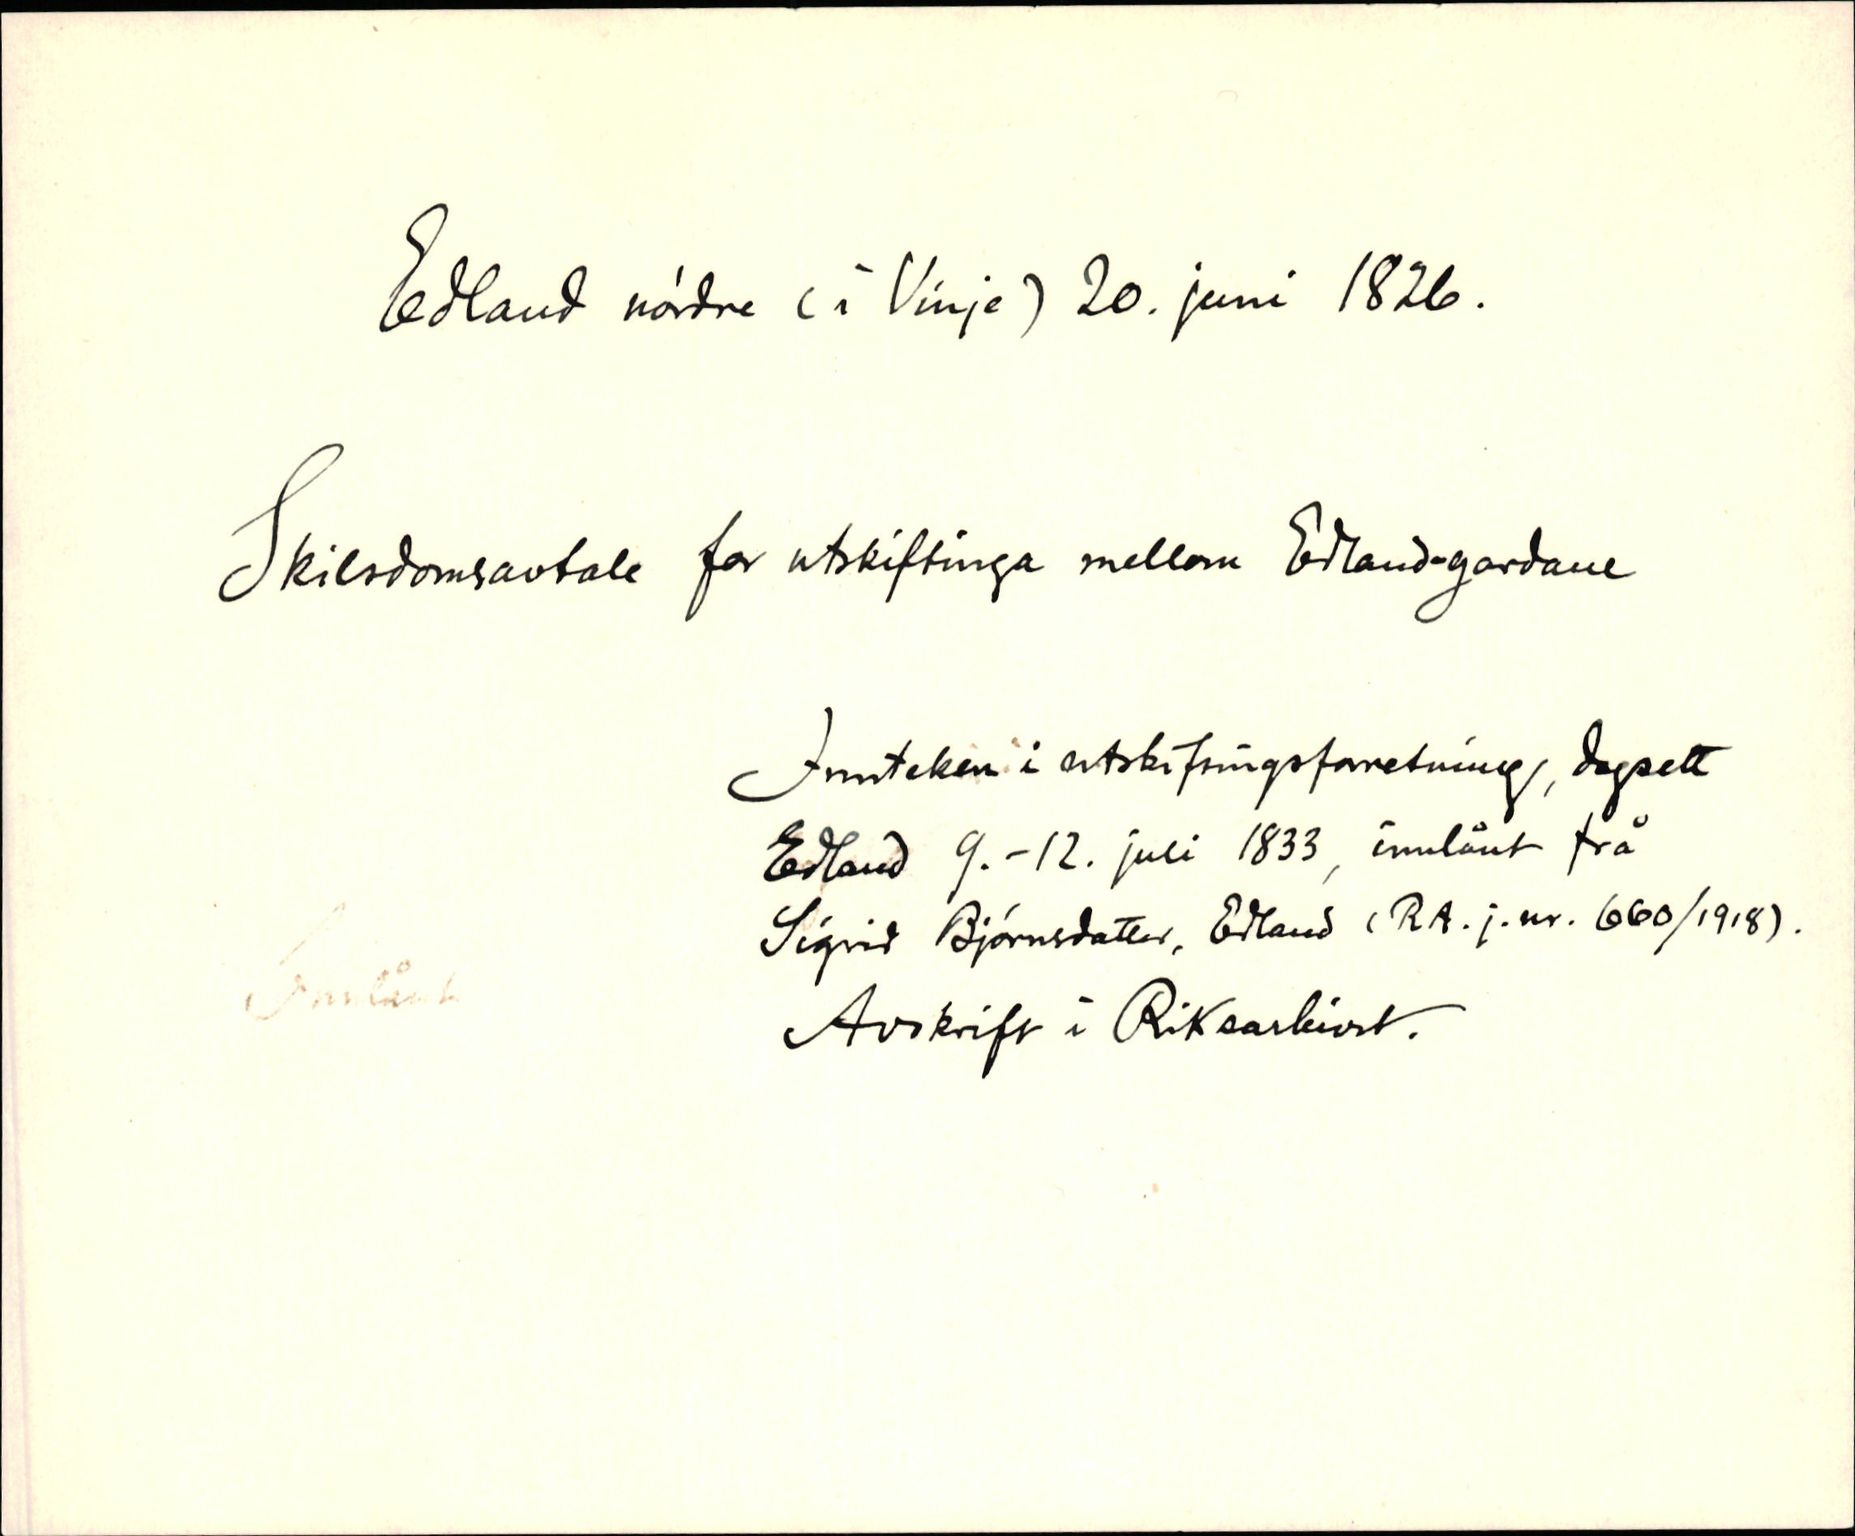 Edland nórdre (i Vinje) 20. juni 1826.
Skilsdomsavtale for utskiftinga mellom Edland-gardane
Innteken i utskiftingsforretning, dagsett
Edland 9.-12. juli 1833, innlånt frå
Sigrid Bjórnsdatter, Edland (R A. j. nr. 660/1918).
Innlånt
Avskrift i Riksarkivet.